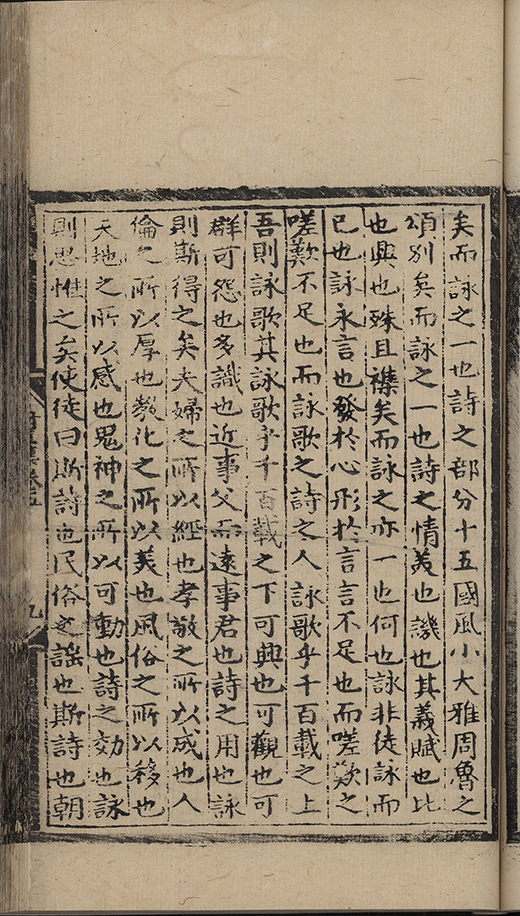 矣而詠之一也詩之部分十五國風小大雅周魯之
頌別矣而詠之一也詩之情美也譏也其義賦也比
也興也殊且襍矣而詠之亦一也何也詠非徒詠而
已也詠永言也發於心形於言言不足也而嗟歎之
嗟歎不足也而詠歌之詩之人詠歌乎千百載之上
吾則詠歌其詠歌乎千百載之下可興也可觀也可
群可怨也多識也近事父而遠事君也詩之用也詠
則斯得之矣夫婦之所以經也孝敬之所以成也人
倫之所以厚也教化之所以美也風俗之所以移也
天地之所以感也鬼神之所以可動也詩之効也詠
則思惟之矣使徒曰斯詩也民俗之謡也斯詩也朝
九